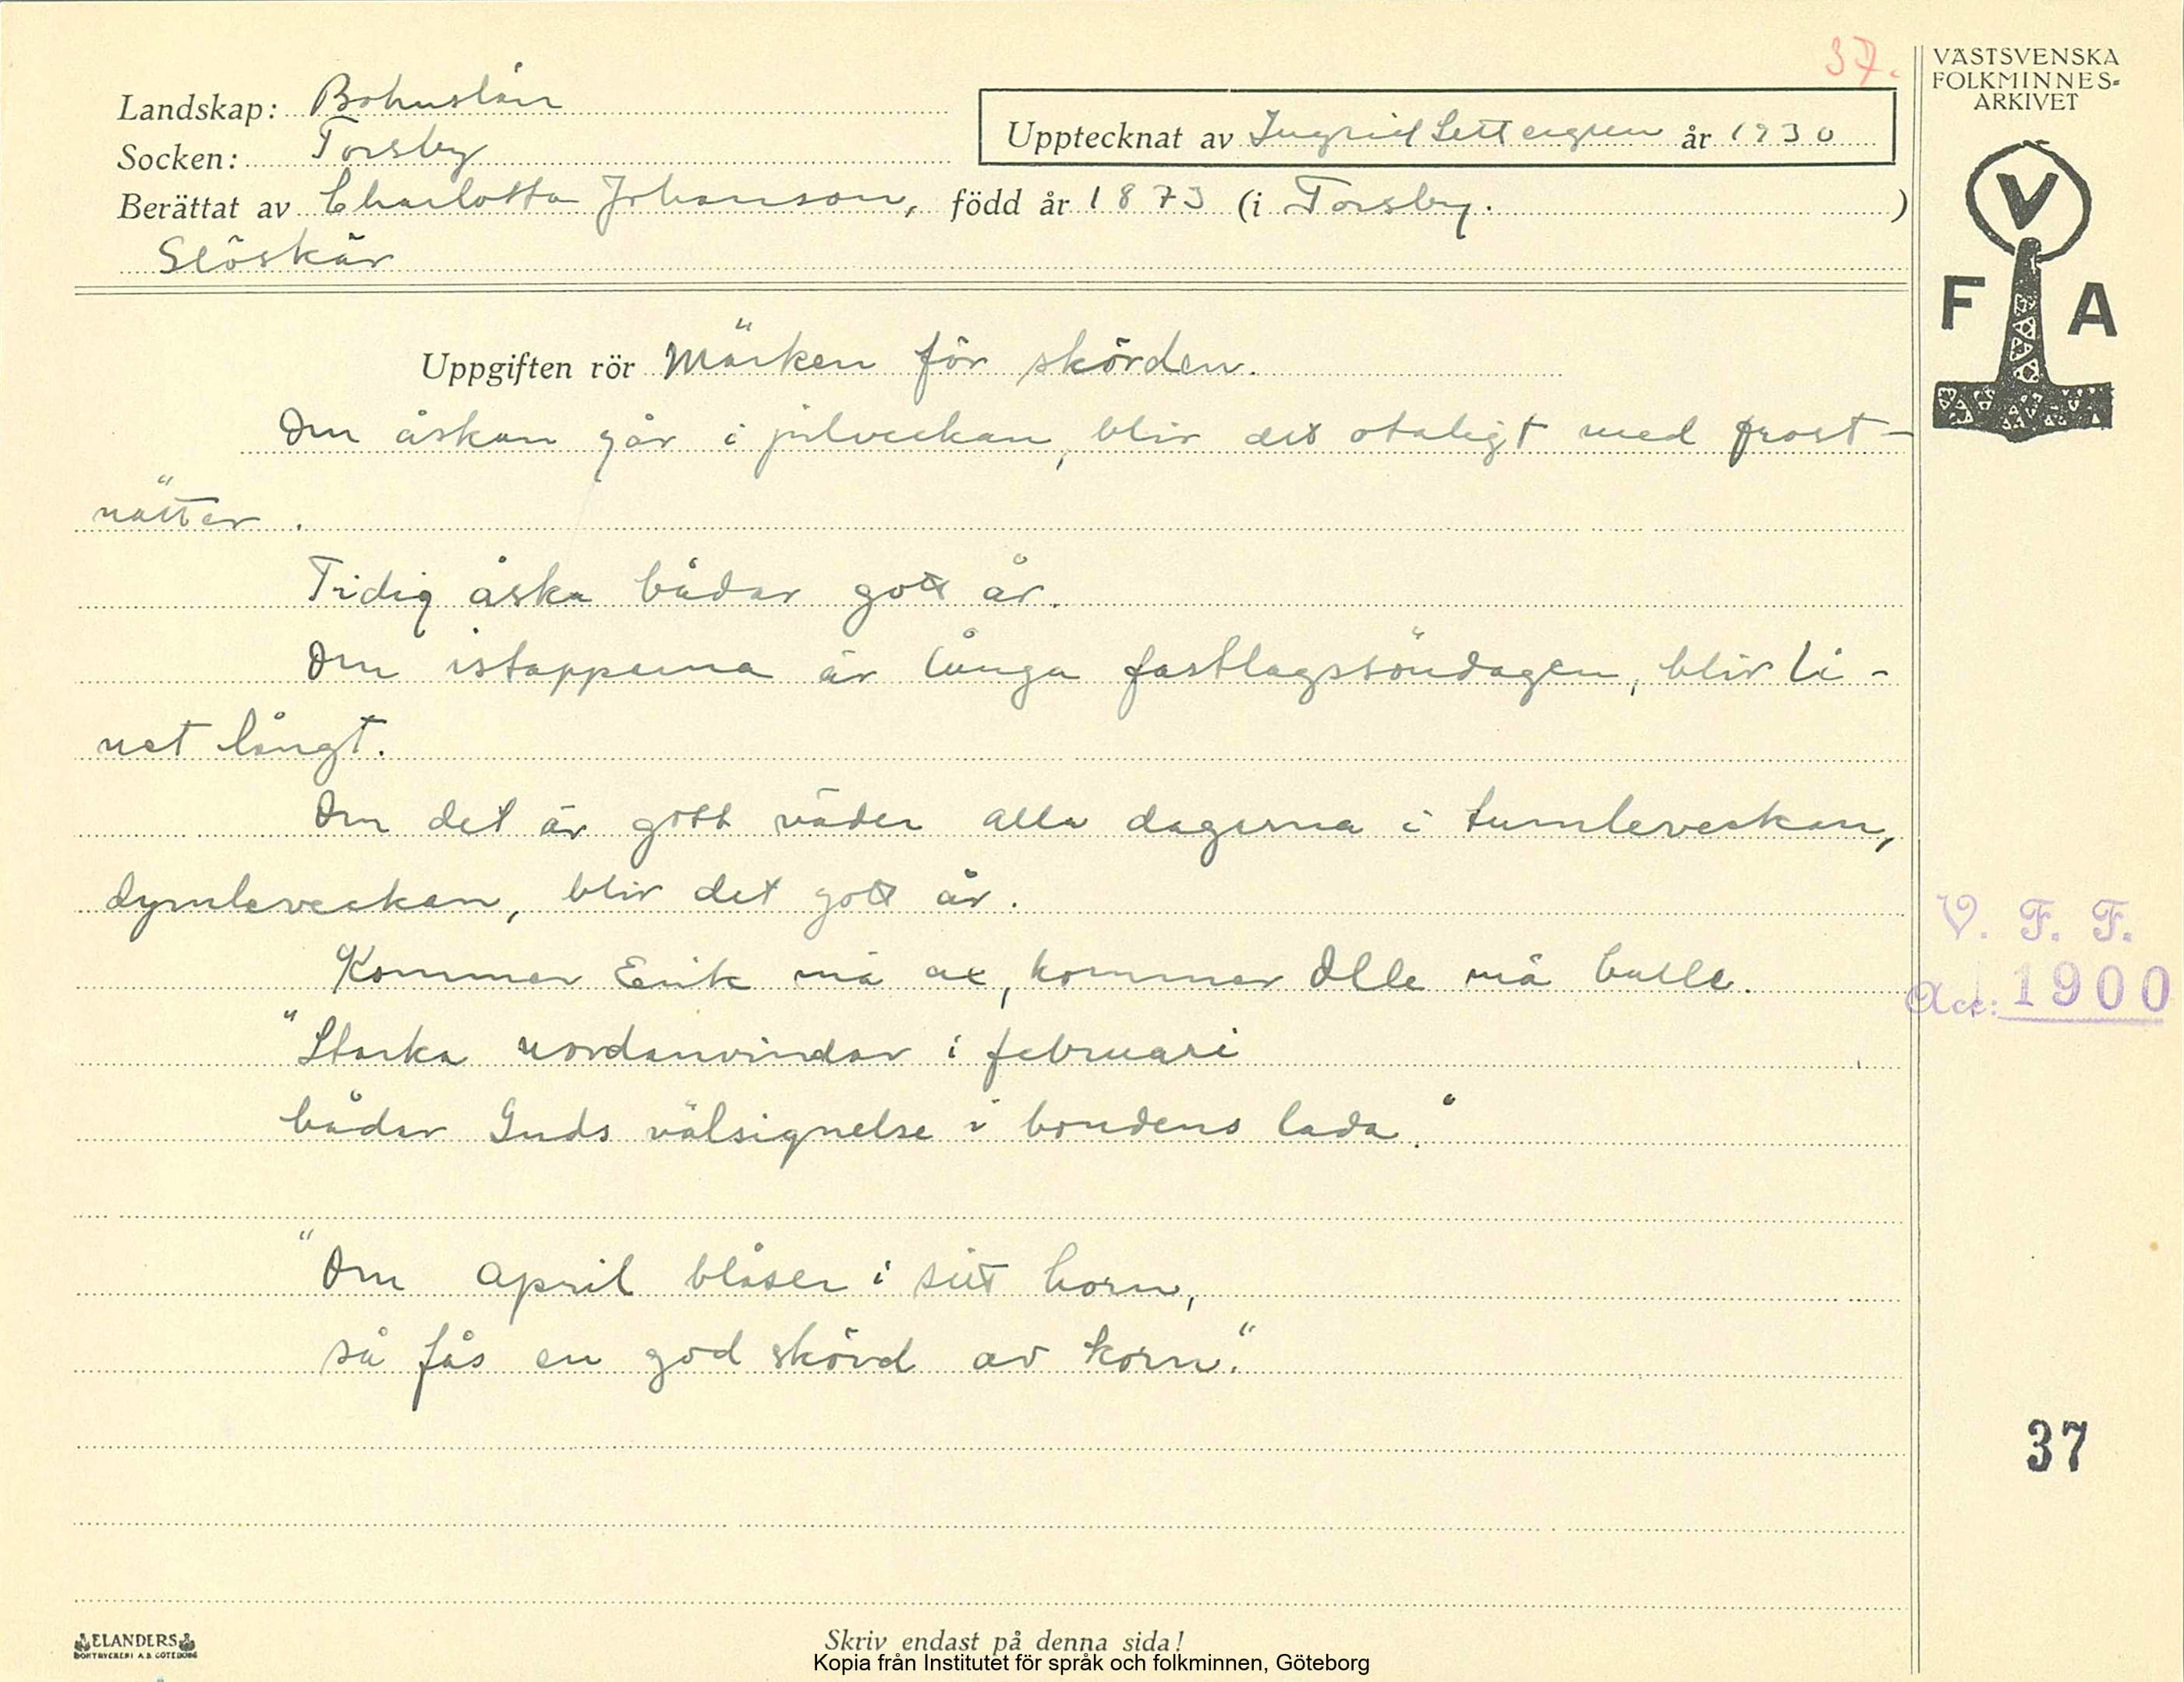 37.
VÄSTSVENSKA
FOLKMINNES-
ARKIVET
Landskap: Bohuslän
Socken: Torsby
Upptecknat av Ingrid Settergren år 1930
Berättat av Charlotta Johanson, född år 1873 (i Torsby. )
Slöskär
V
F A
Uppgiften rör Märken för skörden.
Om åskan går i julveckan, blir det otaligt med frost-
nätter.
Tidig åska bådar gott år.
Om istapperna är långa fastlagssöndagen, blir li-
net långt.
Om det är gott väder alla dagarna i tumleveckan,
dymleveckan, blir det gott år.
Kommer Erik må ax, kommer Olle må bulle.
"Starka nordanvindar i februari
bådar Guds välsignelse i bondens lada."
"Om april blåser i sitt horn,
så fås en god skörd av korn."
V. F. F.
Acc: 1900
37
ELANDERS
BOKTRYCKERI A.B. GÖTEBORG
Skriv endast på denna sida!
Kopia från Institutet för språk och folkminnen, Göteborg